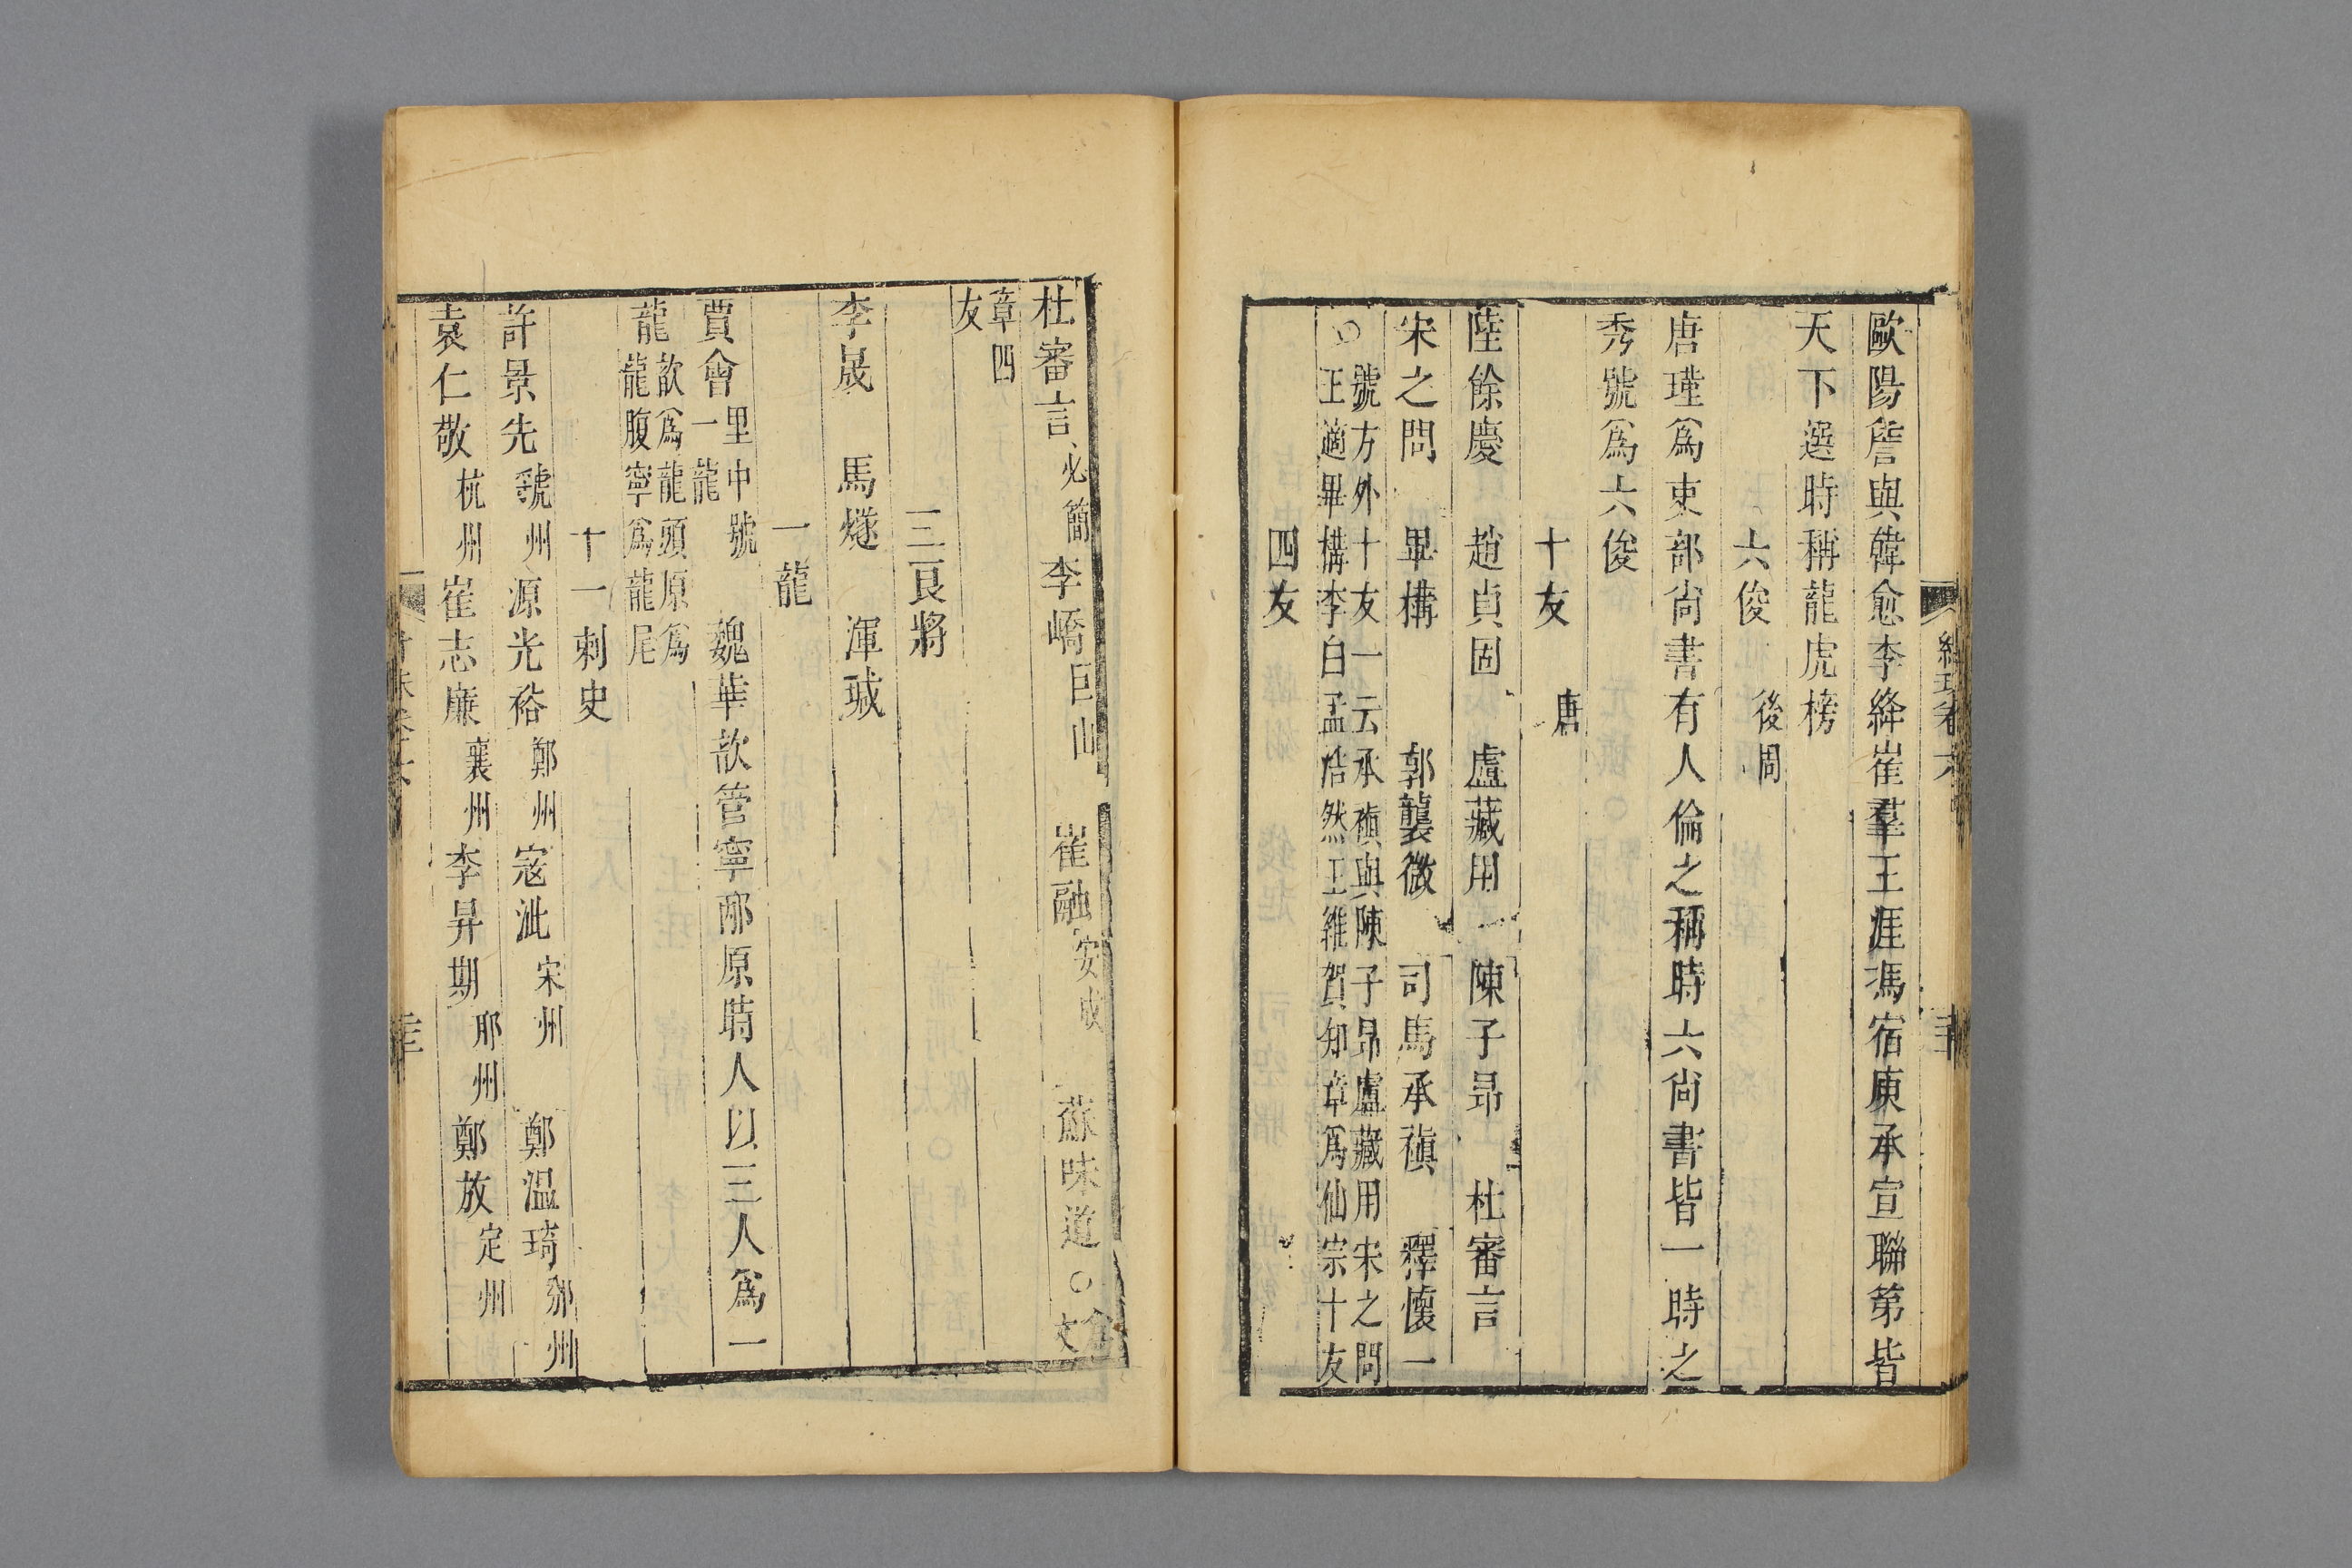 歐陽詹與韓愈李絳崔羣王涯馮宿庾承宣聯第皆
天下選時稱龍虎榜
六俊 後周
唐瑾爲吏部尚書有人倫之稱時六尚書皆一時之
秀號爲六俊
十友 唐
陸餘慶 趙貞固 盧藏用 陳子昂 杜審言
宋之問 畢構 郭襲微 司馬承禎 釋懷一
號方外十友一云承禎與陳子昂盧藏用宋之問
○王適畢構李白孟浩然王維賀知章爲仙宗十友
四友
杜審言必簡 李嶠巨山 崔融安成 蘇味道○
文章四
友
三良將
李晟 馬燧 渾瑊
一龍
賈會里中號一龍 魏華歆管寧邴原時人以三人爲一
龍歆爲龍頭原爲
龍腹寧爲龍尾
十一刺史
許景先虢州 源光裕鄭州 寇泚宋州 鄭温琦邠州
袁仁敬杭州 崔志廉襄州 李昇期邢州 鄭放定州